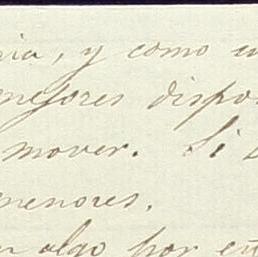 y como
mejores
mover. Si
menores.
algo por